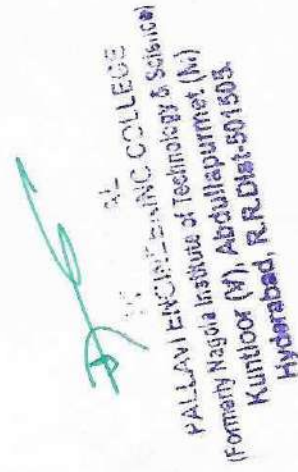 PALLAVI ENGINEERING COLLEGE
(Formerly Nagole Institute of Technology & Science)
Kuntloor (V), Abdullapurmet (M)
Hyderabad, R.R.Dist-501505.